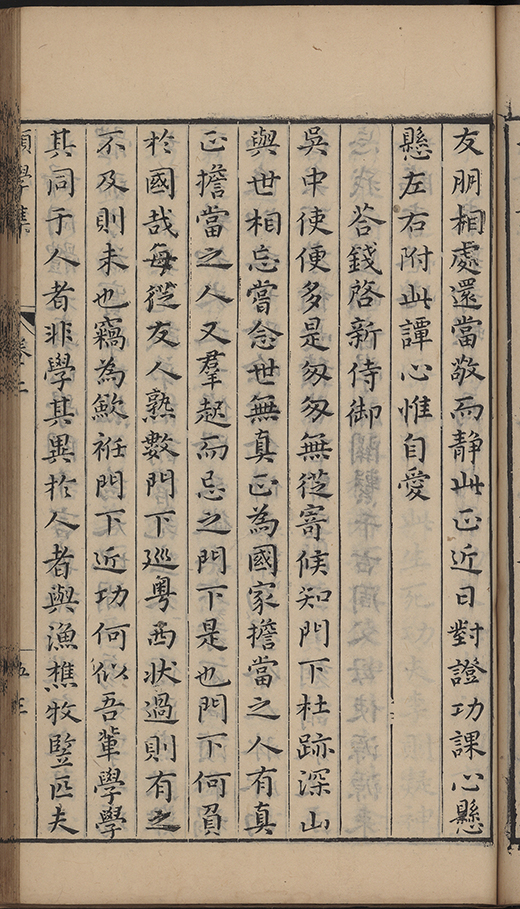 友朋相處還當敬而静此正近日對證功課心懸
懸左右附此譚心惟自愛
荅錢啓新侍御
吳中使便多是匆匆無從寄候知門下杜跡深山
與世相忘嘗念世無真正為國家擔當之人有真
正擔當之人又羣起而忌之門下是也門下何負
於國哉每從友人熟數門下廵粤西狀過則有之
不及則未也竊為歉袵門下近功何似吾輩學學
其同于人者非學其異於人者與漁樵牧豎匹夫
學集
卷二
五三